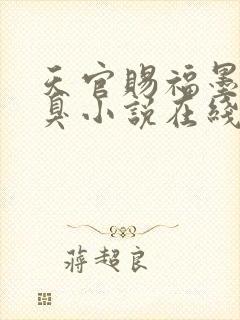 天官賜福墨
臭小說在綫
蔣超良